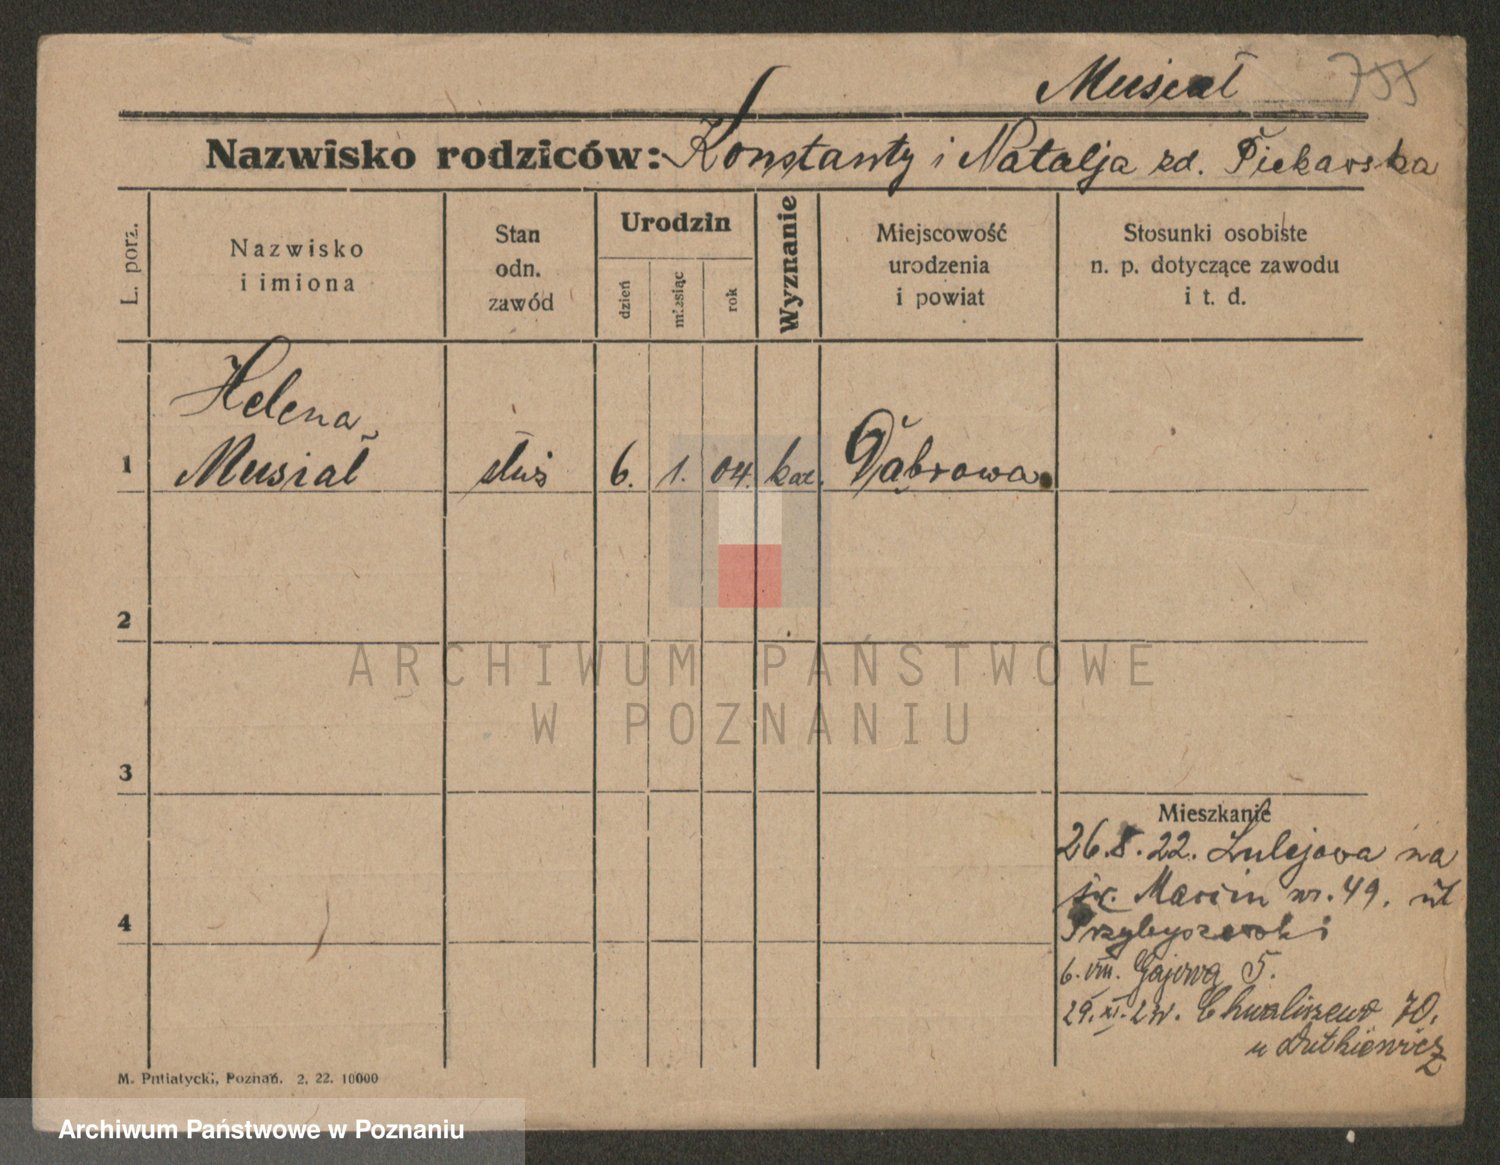 Musiał 755
Nazwisko rodziców: Konstanty i Natalja zd. Piekarska
L. porz.
Nazwisko
i imiona
Stan
odn.
zawód
Urodzin
dzień
miesiąc
rok
Wyznanie
Miejscowość
urodzenia
i powiat
Stosunki osobiste
n. p. dotyczące zawodu
i t. d.
Helena
1 Musiał służ 6. 1. 04. kat. Dąbrowa
2
3
4
ARCHIWUM PAŃSTWOWE
W POZNANIU
Mieszkanie
26.8.22. na
św. Marcin nr. 49. ul
Przybyszewski
6. VIII. Gajowa 5.
29. XI. Chwaliszewo 70.
u Dutkiewicz
M. Putiatycki, Poznań. 2. 22. 10000
Archiwum Państwowe w Poznaniu